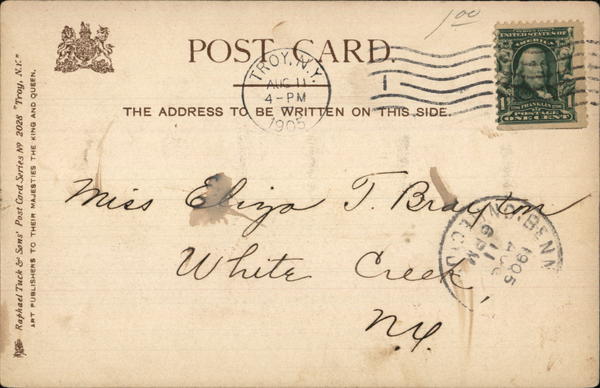 1.00
POST CARD.
TROY, N.Y.
AUG 11
4-PM
1905
1
UNITED STATES OF AMERICA
FRANKLIN
1 POSTAGE 1
ONE CENT
THE ADDRESS TO BE WRITTEN ON THIS SIDE.
Raphael Tuck & Sons' Post Card Series No 2028 "Troy, N.Y."
ART PUBLISHERS TO THEIR MAJESTIES THE KING AND QUEEN.
Miss Eliza T. Brayton
White Creek,
N.Y.
NO. BENN
1905
AUG
11
6 PM
REC'D